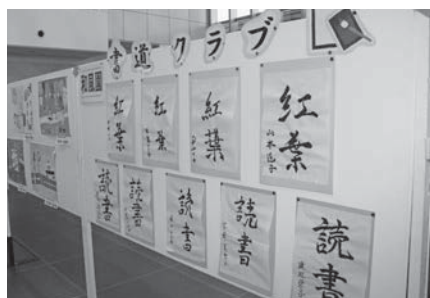 書道クラブ
和風園
紅葉
紅葉
紅葉
紅葉
読書
読書
読書
読書
読書